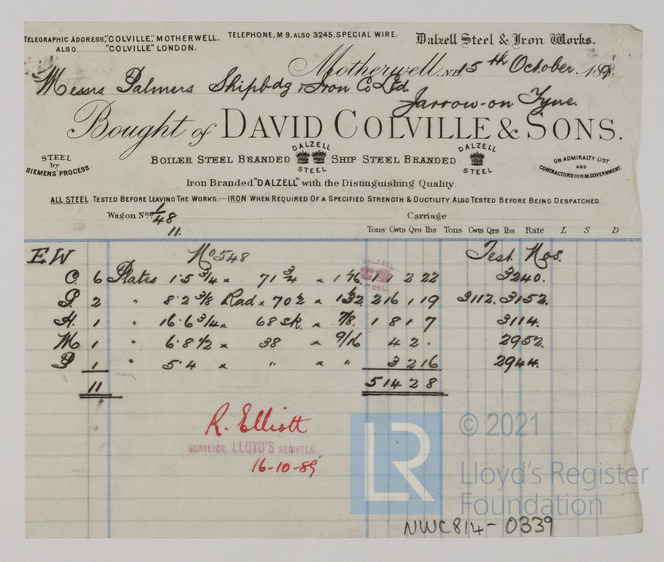 TELEGRAPHIC ADDRESS, "COLVILLE", MOTHERWELL.
ALSO "COLVILLE" LONDON.
TELEPHONE, M 9, ALSO 3245, SPECIAL WIRE.
Dalzell Steel & Iron Works.
Motherwell, N.B. 15th October. 189
Messrs Palmers Shipbdg & Iron Co Ltd.
Jarrow-on Tyne.
Bought of DAVID COLVILLE & SONS.
STEEL by SIEMENS' PROCESS
BOILER STEEL BRANDED DALZELL STEEL SHIP STEEL BRANDED DALZELL STEEL
ON ADMIRALTY LIST AND CONTRACTORS TO H.M. GOVERNMENT.
Iron Branded "DALZELL" with the Distinguishing Quality.
ALL STEEL TESTED BEFORE LEAVING THE WORKS.—IRON WHEN REQUIRED OF A SPECIFIED STRENGTH & DUCTILITY ALSO TESTED BEFORE BEING DESPATCHED.
Wagon Nos 1/48 Carriage
11.
Tons Cwts Qrs lbs Tons Cwts Qrs lbs Rate L S D
EW No 548 Test Nos.
O. 6 Plates 1·5 3/4 x 71 3/4 x 1 2 22 3240.
P 2 " 8·2 3/8 Rad x 70 1/2 x 1 1/32 2 16 1 19 3112. 3152.
H. 1 " 16·6 3/4 x 68 sk. x 7/8. 1 8 1 7 3114.
M 1 " 6·8 1/2 x 38 x 9/16 4 2 · 2952.
P 1 " 5·4 x " x " 3 2 16 2944.
11 5 14 2 8
R. Elliott
SURVEYOR, LLOYD'S REGISTER.
16-10-89
LR © 2021
Lloyd's Register
Foundation
NWC814-0339